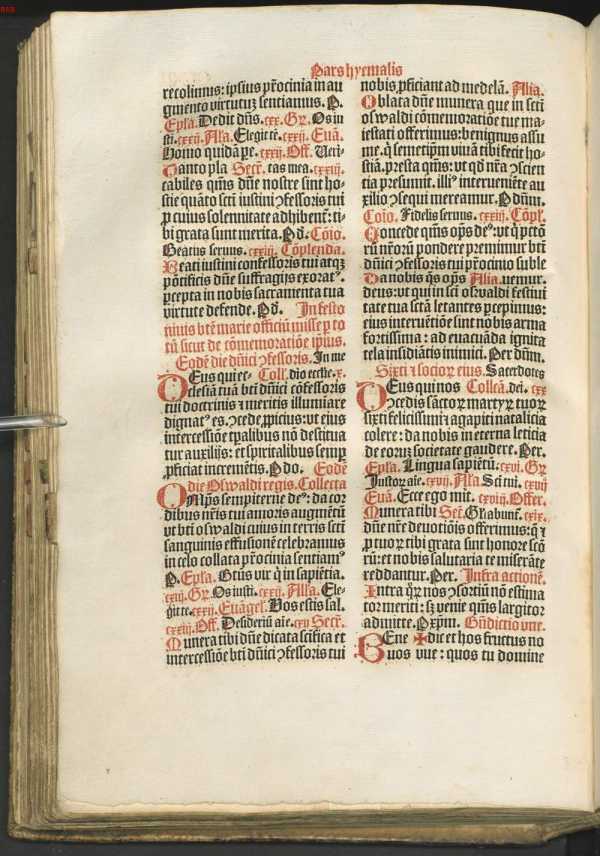 Pars hyemalis
recolimus: ipsius pr̃ocinia in au
gmento virtutuꝫ sentiamus. P.
Epła. Dedit dñs. cxx. Gꝛ̃. Os iu
sti. cxxij. Ała. Elegit tē. cxxij. Euā.
Homo quidā pe. cxxij. Off. Veri⸗
tas mea. cxxiij.
Panto pla Secr̃.
cabiles qm̃s dñe nostre sint ho⸗
stie quāto scti iustini ꝯfessoris tui
ꝑ cuius solennitate adhibent̃: ti⸗
bi grata sunt merita. Pd̃. Cōio.
Beatus seruus. cxxiij. Cōplenda.
Beati iustini confessoris tui atqꝫ
pōtificis dñe suffragijs exorat⁹.
ꝑcepta in nobis sacramenta tua
virtute defende. Pd̃. In festo
niuis btē marie officiū misse ꝑ to
tū sicut de cōmemoratiōe ip̄ius.
Eodē die dñici ꝯfessoris. In me
dio ecclie. x.
Deus qui ec⸗ Coll.
clesiā tuā btī dñici cōfessoris
tui doctrinis ⁊ meritis illumiare
dignat⁹ es. ꝯcede ꝓpicius: vt eius
intercessiōe tꝑalibus nō destitua
tur auxilijs: et spiritalibus semꝑ
ꝓficiat incremētis. Pdo. Eodē
die Oswaldi regis. Collecta
Omp̄s sempiterne de⁹: da cor
dibus nr̄is tui amoris augmētū
vt btī oswaldi cuius in terris scti
sanguinis effusionē celebramus
in celo collata pr̃ocinia sentiam⁹
P. Epła. Gtūs vir q̄ in sapiētia.
cxiij. Gꝛ̃. Os iusti. cxxij. Alla. Ele⸗
git te. cxxij. Euāgeł. Vos estis sal.
cxxiij. Off. Desideriū aīe. cxv Secr̃.
Munera tibi dñe dicata scīfica et
intercessiōe btī dñici ꝯfessoris tui
nobis ꝓficiant ad medelā. Alia.
Oblata dñe munera que in scti
oswaldi cōmemoratiōe tue ma⸗
iestati offerimus: benignus assu
me. q̄ semetip̄m viuā tibi fecit ho⸗
stiā. presta qm̃s: vt qđ nr̄a ꝯscien
tia presumit. illi⁹ interueniēte au
xilio ꝯsequi mereamur. P dñm.
Coīo. Fidelis seruus. cxxiij. Cōpł.
Concede qm̃s op̄s de⁹: vt q̄ pctō
rū nr̄orū pondere premimur btī
dñici ꝯfessoris tui pr̃ocinio suble
uemur.
Da nobis q̄s op̄s Alia.
deus: vt qui in scī oswaldi festiui
tate tua sctā letantes ꝑcepimus:
eius interuētiōe sint nobis arma
fortissima: ad euacuāda ignita
tela insidiātis inimici. Per dñm.
Sixti ⁊ socioꝝ eius. Sacerdotes
dei. cxx
Deus qui nos Collcā.
ꝯcedis sāctoꝝ martyꝝ tuoꝝ
sixti felicissimi ⁊ agapiti natalicia
colere: da nobis in eterna leticia
de eoꝝ societate gaudere. Per.
Epła. Lingua sapiētū. cxvi. Gꝛ̃
Iustoꝝ aīe. cxvij. Ała Scī tui. cxvij
Euā. Ecce ego mīt. cxviij. Offer.
Gľabunt̃. cxix.
Munera tibi Sec̃.
dñe nr̄e deuotiōis offerimus: q̄ ⁊
ꝑ tuoꝝ tibi grata sint honore scō
rū: et nobis salutaria te miserāte
reddantur. Per. Infra actionē.
Intra q̄ꝝ nos ꝯsortiū nō estima
tor meriti: sꝫ venie qm̃s largitor
admitte. P xp̄m. Bñdictio vue.
Bene ✠ dic et hos fructus no
uos vue: quos tu domine